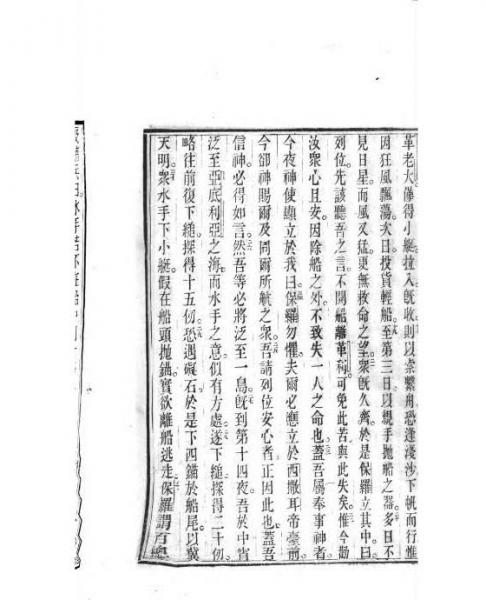 革老大僅得小艇拉入旣收則以索繫舟恐逢淺沙下帆而行惟
因狂風飄蕩次日投貨輕船至第三日以親手抛船之器多日不
見日星而風又猛更無救命之望衆旣久齋於是保羅立其中曰
列位先該聽吾之言不開船離革利可免此苦與此失矣惟今勸
汝衆心且安因除船之外不致失一人之命也蓋吾屬奉事神者
今夜神使顯立於我曰保羅勿懼夫爾必應立於西撒耳帝臺前
今卻神賜爾及同爾所航之衆吾請列位安心者正因此也蓋吾
信神必得如言然吾等必將泛至一島旣到第十四夜吾於中宵
泛至亞底利亞之海而水手之意似有方處遂下縋探得二十仞
略往前復下縋探得十五仞恐遇礙石於是下四錨於船尾以冀
天明衆水手下小艇假在船頭抛錨實欲離船逃走保羅謂百總